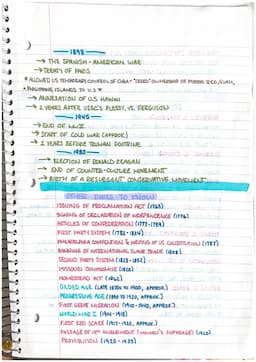 1898
→ THE SPANISH-AMERICAN WAR
→ TREATY OF PARIS
* ALLOWED US TEMPORARY CONTROL OF CUBA + "CEDED" OWNERSHIP OF PUERTO RICO, GUAM,
PHILIPPINE ISLANDS TO U.S *
→ ANNEXATION OF U.S. HAWAII
→ 2 YEARS AFTER USSC'S PLESSY VS. FERGUSON
1945
→ END OF WWII
→ START OF COLD WAR (APPROX)
→ 2 YEARS BEFORE TRUMAN DOCTRINE
1980
→ ELECTION OF RONALD REAGAN
→ END OF COUNTER-CULTURE MOVEMENT
→ BIRTH OF A RESURGENT CONSERVATIVE MOVEMENT
OTHER DATES TO KNOW
ISSUING OF PROCLAMATION ACT (1763)
SIGNING OF DECLARATION OF INDEPENDENCE (1776)
ARTICLES OF CONFEDERATION (1777-1789)
FIRST PARTY SYSTEM (1792-1824)
PHILADELPHIA CONVENTION & WRITING OF US CONSTITUTION (1787)
BANNING OF INTERNATIONAL SLAVE TRADE (1808)
SECOND PARTY SYSTEM (1828-1852)
MISSOURI COMPROMISE (1820)
HOMESTEAD ACT (1862)
GILDED AGE (LATE 1870s TO 1900, APPROX.)
PROGRESSIVE AGE (1890 TO 1920, APPROX.)
FIRST GREAT MIGRATION (1910-1940, APPROX.)
WORLD WAR I (1914-1918)
FIRST RED SCARE (1917-1920, APPROX.)
PASSAGE OF 19TH AMENDMENT (WOMEN'S SUFFRAGE) (1920)
PROHIBITION (1920-1933)